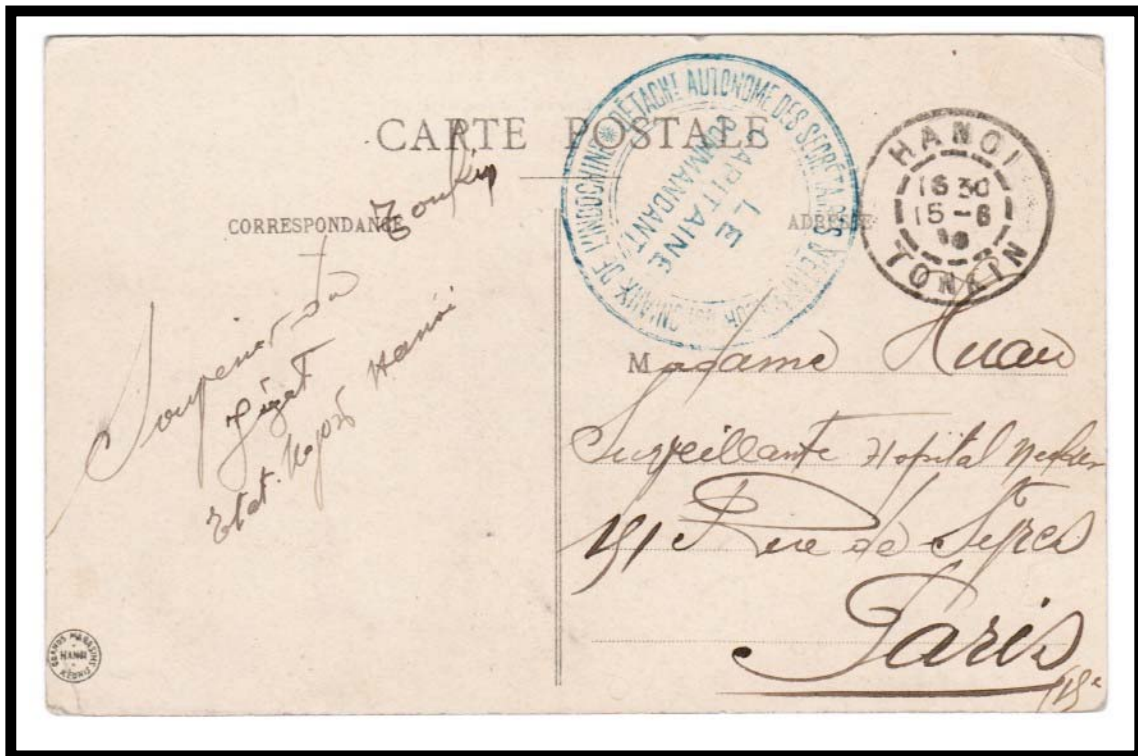 CARTE POSTALE
Tonkin
CORRESPONDANCE
ADRESSE
DÉTACHT AUTONOME DES SECRÉTAIRES COLONIAUX DE L'INDOCHINE
LE
CAPITAINE
COMMANDANT
HANOI
16 30
15-6
TONKIN
Souvenir du
Etat-Major Hanoi
Madame Huau
Surveillante Hopital Necker
151 Rue de Sèvres
Paris
GRANDS MAGASINS
HANOI